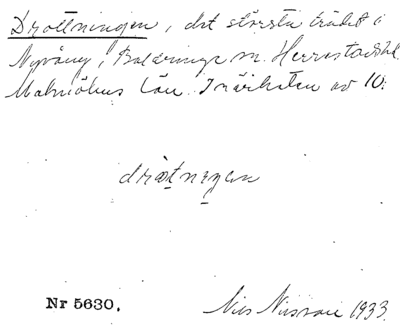 Drottningen, det största trädet i
Nyvång, Baldringe sn. Herrestads hd.
Malmöhus län. I närheten av 10.
drotningen
Nr 5630.
Nils Nilsson 1933.